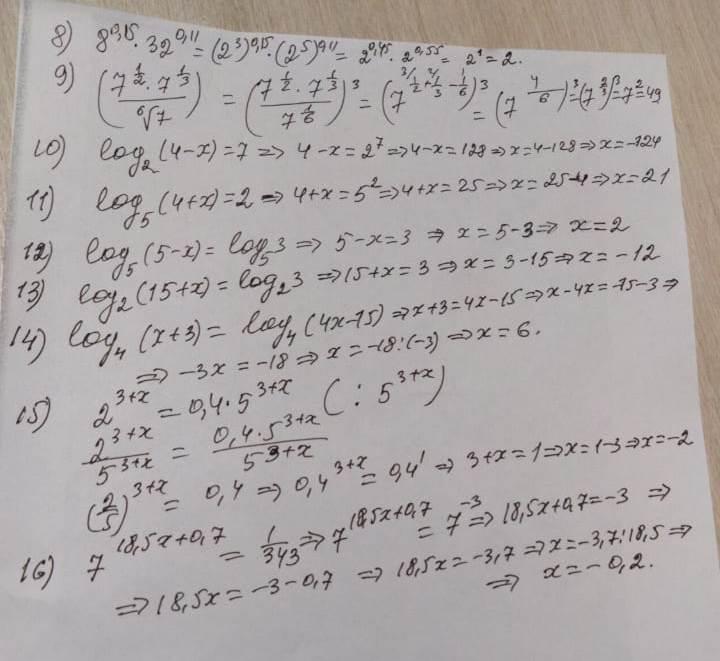 8) 8^0,15 · 32^0,11 = (2^3)^0,15 · (2^5)^0,11 = 2^0,45 · 2^0,55 = 2^1 = 2.
9) (7^(1/2) · 7^(1/3) / ⁶√7) = (7^(1/2) · 7^(1/3) / 7^(1/6))^3 = (7^(1/2 + 1/3 - 1/6))^3 = (7^(4/6))^3 = (7^(2/3))^3 = 7^2 = 49
10) log₂(4-x) = 7 ⇒ 4-x = 2^7 ⇒ 4-x = 128 ⇒ x = 4-128 ⇒ x = -124
11) log₅(4+x) = 2 ⇒ 4+x = 5^2 ⇒ 4+x = 25 ⇒ x = 25-4 ⇒ x = 21
12) log₅(5-x) = log₅3 ⇒ 5-x = 3 ⇒ x = 5-3 ⇒ x = 2
13) log₂(15+x) = log₂3 ⇒ 15+x = 3 ⇒ x = 3-15 ⇒ x = -12
14) log₄(x+3) = log₄(4x-15) ⇒ x+3 = 4x-15 ⇒ x-4x = -15-3 ⇒
⇒ -3x = -18 ⇒ x = -18:(-3) ⇒ x = 6.
15) 2^(3+x) = 0,4 · 5^(3+x) (: 5^(3+x))
2^(3+x) / 5^(3+x) = 0,4 · 5^(3+x) / 5^(3+x)
(2/5)^(3+x) = 0,4 ⇒ 0,4^(3+x) = 0,4^1 ⇒ 3+x = 1 ⇒ x = 1-3 ⇒ x = -2
16) 7^(18,5x+0,7) = 1/343 ⇒ 7^(18,5x+0,7) = 7^(-3) ⇒ 18,5x+0,7 = -3 ⇒
⇒ 18,5x = -3-0,7 ⇒ 18,5x = -3,7 ⇒ x = -3,7:18,5 ⇒
⇒ x = -0,2.